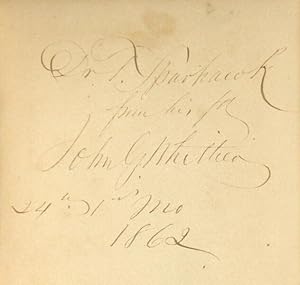 Dr. T. Sparhawk
from his fd
John G. Whittier
24th 1st Mo
1862